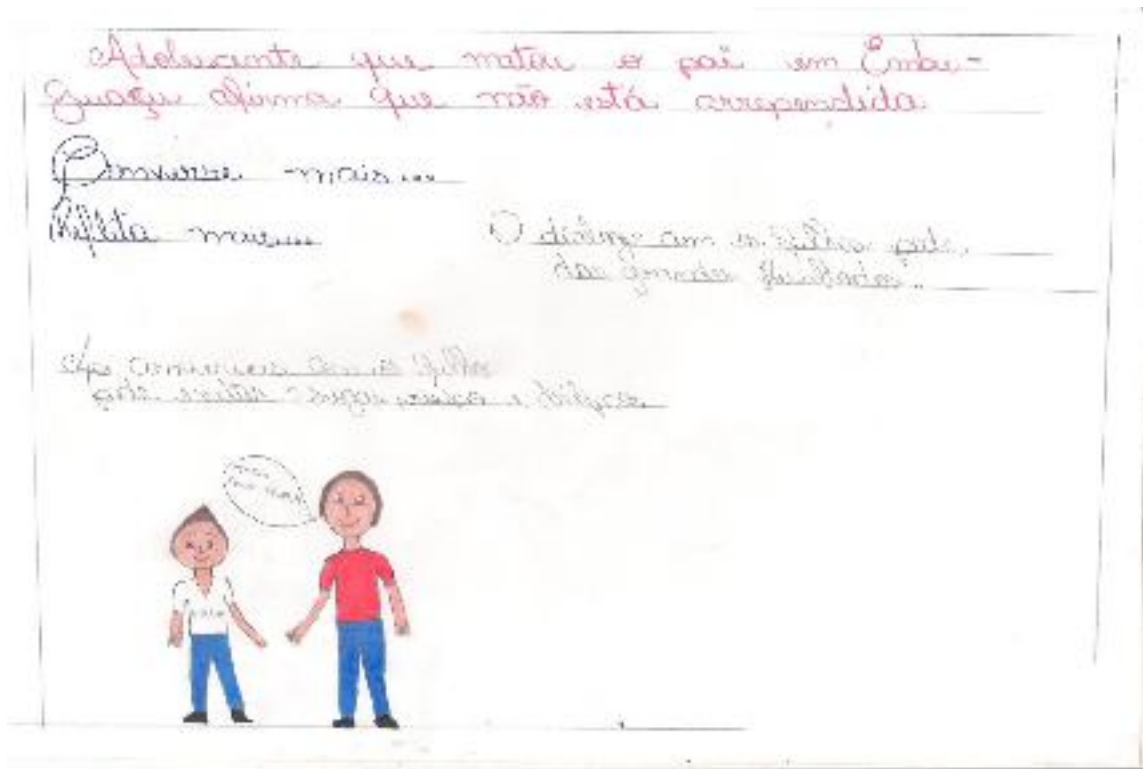 Adolescente que matou o pai em Embu-
Guaçu afirma que não está arrependida
Converse mais...
Reflita mais...
O diálogo com os filhos pode
dar grandes resultados".
conversar com os filhos
pode evitar